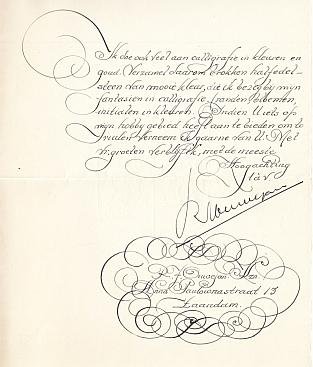 Ik doe ook veel aan calligrafie in kleuren en
goud. Verzamel daarom brokken halfedel-
steen van mooie kleur, die ik bezig bij mijn
fantasien in calligrafie, randen,
initialen in kleuren. Indien U iets op
mijn hobby gebied heeft aan te bieden om te
ruilen Verneem ik gaarne van U. Met
vr. groeten verblijf ik, met de meeste
Hoogachting
Anna Paulownastraat 13
Zaandam.